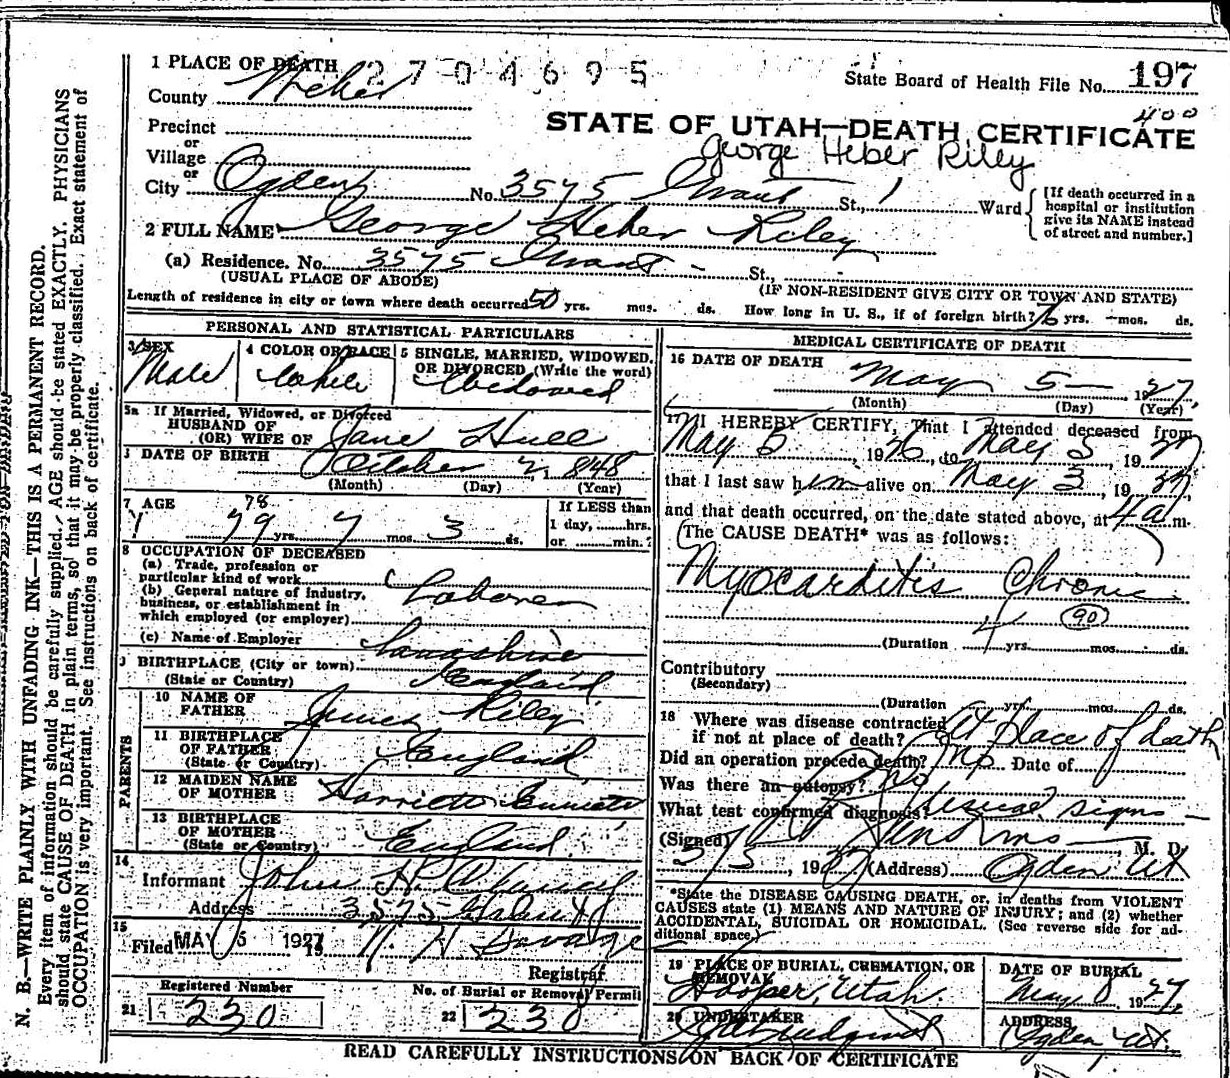 1 PLACE OF DEATH 2704695
State Board of Health File No. 197
County Weber
400
STATE OF UTAH—DEATH CERTIFICATE
George Heber Riley
Precinct
or
Village
or
City Ogden No. 3575 Grant St., 1 Ward
[If death occurred in a hospital or institution give its NAME instead of street and number.]
2 FULL NAME George Heber Riley
(a) Residence. No. 3575 Grant St.,
(USUAL PLACE OF ABODE) (IF NON-RESIDENT GIVE CITY OR TOWN AND STATE)
Length of residence in city or town where death occurred 50 yrs. mos. ds. How long in U. S., if of foreign birth? yrs. mos. ds.
PERSONAL AND STATISTICAL PARTICULARS
3 SEX Male
4 COLOR OR RACE White
5 SINGLE, MARRIED, WIDOWED, OR DIVORCED (Write the word) Widowed
5a If Married, Widowed, or Divorced
HUSBAND OF
(OR) WIFE OF Jane Hull
DATE OF BIRTH October 2, 1848
(Month) (Day) (Year)
7 AGE 78
79 yrs. 7 mos. 3 ds.
If LESS than
1 day, hrs.
or min.?
8 OCCUPATION OF DECEASED
(a) Trade, profession or
particular kind of work Laborer
(b) General nature of industry,
business, or establishment in
which employed (or employer)
(c) Name of Employer
BIRTHPLACE (City or town) Lancashire
(State or Country) England
PARENTS
10 NAME OF FATHER James Riley
11 BIRTHPLACE OF FATHER England
(State or Country)
12 MAIDEN NAME OF MOTHER Harriett
13 BIRTHPLACE OF MOTHER England
(State or Country)
14
Informant John H.
Address 3575 Grant
15
Filed MAY 5 1927 Savage
Registrar
Registered Number
21 230
No. of Burial or Removal Permit
22 230
MEDICAL CERTIFICATE OF DEATH
16 DATE OF DEATH May 5 1927
(Month) (Day) (Year)
17 I HEREBY CERTIFY, That I attended deceased from
May 5, 1926, to May 5, 1927
that I last saw him alive on May 3, 1927,
and that death occurred, on the date stated above, at 4 a m.
The CAUSE DEATH* was as follows:
Myocarditis Chronic
90
(Duration 4 yrs. mos. ds.
Contributory
(Secondary)
(Duration yrs. mos. ds.
18 Where was disease contracted
if not at place of death? At place of death
Did an operation precede death? No Date of
Was there an autopsy? No
What test confirmed diagnosis? usual signs
(Signed) M. D.
5/5, 1927 (Address) Ogden Ut
*State the DISEASE CAUSING DEATH, or, in deaths from VIOLENT
CAUSES state (1) MEANS AND NATURE OF INJURY; and (2) whether
ACCIDENTAL, SUICIDAL OR HOMICIDAL. (See reverse side for ad-
ditional space.)
19 PLACE OF BURIAL, CREMATION, OR REMOVAL
Hooper, Utah.
DATE OF BURIAL
May 8 1927,
20 UNDERTAKER
ADDRESS
Ogden Ut.
READ CAREFULLY INSTRUCTIONS ON BACK OF CERTIFICATE
N. B.—WRITE PLAINLY WITH UNFADING INK—THIS IS A PERMANENT RECORD.
Every item of information should be carefully supplied. AGE should be stated EXACTLY. PHYSICIANS
should state CAUSE OF DEATH in plain terms, so that it may be properly classified. Exact statement of
OCCUPATION is very important. See instructions on back of certificate.